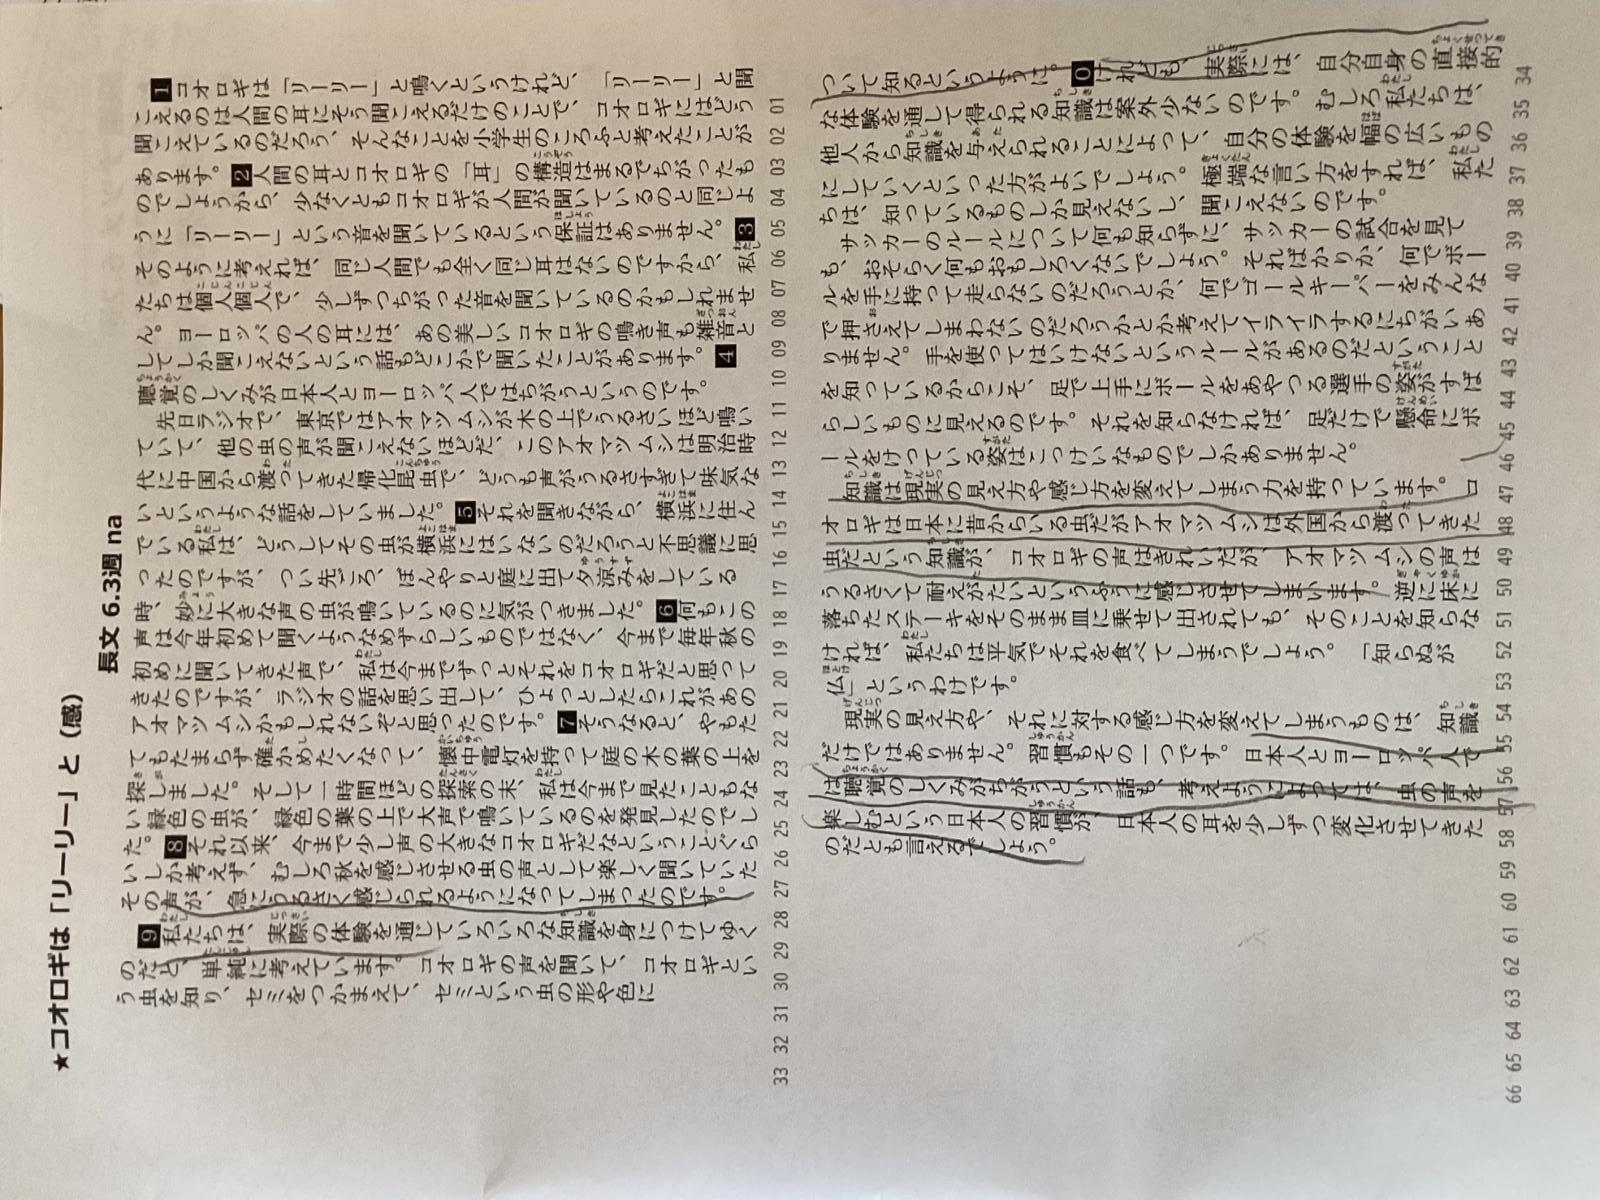 ★コオロギは「リーリー」と（感）
長文 6.3週 na
1コオロギは「リーリー」と鳴くというけれど、「リーリー」と聞
こえるのは人間の耳にそう聞こえるだけのことで、コオロギにはどう
聞こえているのだろう、そんなことを小学生のころふと考えたことが
あります。2人間の耳とコオロギの「耳」の構造はまるでちがったも
のでしょうから、少なくともコオロギが人間が聞いているのと同じよ
うに「リーリー」という音を聞いているという保証はありません。3
そのように考えれば、同じ人間でも全く同じ耳はないのですから、私
たちは個人個人で、少しずつちがった音を聞いているのかもしれませ
ん。ヨーロッパの人の耳には、あの美しいコオロギの鳴き声も雑音と
してしか聞こえないという話もどこかで聞いたことがあります。4
聴覚のしくみが日本人とヨーロッパ人ではちがうというのです。
先日ラジオで、東京ではアオマツムシが木の上でうるさいほど鳴い
ていて、他の虫の声が聞こえないほどだ、このアオマツムシは明治時
代に中国から渡ってきた帰化昆虫で、どうも声がうるさすぎて味気な
いというような話をしていました。5それを聞きながら、横浜に住ん
でいる私は、どうしてその虫が横浜にはいないのだろうと不思議に思
ったのですが、つい先ごろ、ぼんやりと庭に出て夕涼みをしている
時、妙に大きな声の虫が鳴いているのに気がつきました。6何もこの
声は今年初めて聞くようなめずらしいものではなく、今まで毎年秋の
初めに聞いてきた声で、私は今までずっとそれをコオロギだと思って
きたのですが、ラジオの話を思い出して、ひょっとしたらこれがあの
アオマツムシかもしれないぞと思ったのです。7そうなると、やもた
てもたまらず確かめたくなって、懐中電灯を持って庭の木の葉の上を
探しました。そして一時間ほどの探索の末、私は今まで見たこともな
い緑色の虫が、緑色の葉の上で大声で鳴いているのを発見したのでし
た。8それ以来、今まで少し声の大きなコオロギだなということぐら
いしか考えず、むしろ秋を感じさせる虫の声として楽しく聞いていた
その声が、急にうるさく感じられるようになってしまったのです。
9私たちは、実際の体験を通じていろいろな知識を身につけてゆく
のだと、単純に考えています。コオロギの声を聞いて、コオロギとい
う虫を知り、セミをつかまえて、セミという虫の形や色に
01 02 03 04 05 06 07 08 09 10 11 12 13 14 15 16 17 18 19 20 21 22 23 24 25 26 27 28 29 30 31 32 33
ついて知るというように。0けれども、実際には、自分自身の直接的
な体験を通して得られる知識は案外少ないのです。むしろ私たちは、
他人から知識を与えられることによって、自分の体験を幅の広いもの
にしていくといった方がよいでしょう。極端な言い方をすれば、私た
ちは、知っているものしか見えないし、聞こえないのです。
サッカーのルールについて何も知らずに、サッカーの試合を見て
も、おそらく何もおもしろくないでしょう。そればかりか、何でボー
ルを手に持って走らないのだろうとか、何でゴールキーパーをみんな
で押さえてしまわないのだろうかとか考えてイライラするにちがいあ
りません。手を使ってはいけないというルールがあるのだということ
を知っているからこそ、足で上手にボールをあやつる選手の姿がすば
らしいものに見えるのです。それを知らなければ、足だけで懸命にボ
ールをけっている姿はこっけいなものでしかありません。
知識は現実の見え方や感じ方を変えてしまう力を持っています。コ
オロギは日本に昔からいる虫だがアオマツムシは外国から渡ってきた
虫だという知識が、コオロギの声はきれいだが、アオマツムシの声は
うるさくて耐えがたいというふうに感じさせてしまいます。逆に床に
落ちたステーキをそのまま皿に乗せて出されても、そのことを知らな
ければ、私たちは平気でそれを食べてしまうでしょう。「知らぬが
仏」というわけです。
現実の見え方や、それに対する感じ方を変えてしまうものは、知識
だけではありません。習慣もその一つです。日本人とヨーロッパ人で
は聴覚のしくみがちがうという話も、考えようによっては、虫の声を
楽しむという日本人の習慣が、日本人の耳を少しずつ変化させてきた
のだとも言えるでしょう。
34 35 36 37 38 39 40 41 42 43 44 45 46 47 48 49 50 51 52 53 54 55 56 57 58 59 60 61 62 63 64 65 66